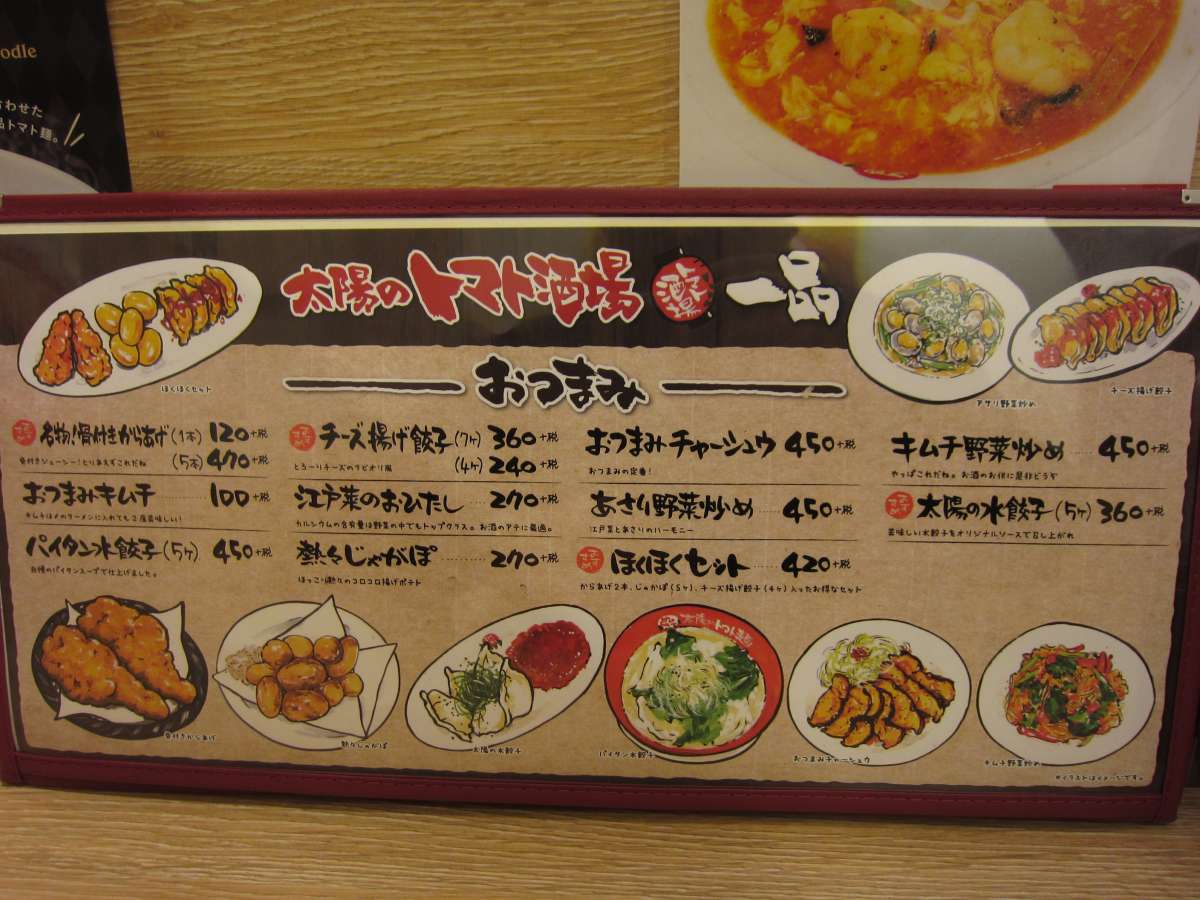 oodle
合わせた
品トマト麺。
太陽のトマト酒場 一品
おつまみ
ほくほくセット
アサリ野菜炒め
チーズ揚げ餃子
名物!骨付きからあげ(1本) 120+税
(5本) 470+税
骨付きジューシー!とりあえずこれだね
おつまみキムチ 100+税
キムチはメのラーメンに入れても2度美味しい!
パイタン水餃子(5ヶ) 450+税
自慢のパイタンスープで仕上げました。
おすすめ チーズ揚げ餃子(7ヶ) 360+税
(4ヶ) 240+税
とろーりチーズのラビオリ風
江戸菜のおひたし 270+税
カルシウムの含有量は野菜の中でもトップクラス。お酒のアテに最適。
熱々じゃがぽ 270+税
ほっこり熱々のコロコロ揚げポテト
おつまみチャーシュウ 450+税
おつまみの定番!
あさり野菜炒め 450+税
江戸菜とあさりのハーモニー
おすすめ ほくほくセット 420+税
からあげ2本、じゃがぽ(5ヶ)、チーズ揚げ餃子(4ヶ)入ったお得なセット
キムチ野菜炒め 450+税
やっぱこれだね。お酒のお供に是非どうぞ
おすすめ 太陽の水餃子(5ヶ) 360+税
美味しい水餃子をオリジナルソースで召し上がれ
骨付きからあげ
熱々じゃがぽ
太陽の水餃子
太陽のトマト麺
パイタン水餃子
おつまみチャーシュウ
キムチ野菜炒め
※イラストはイメージです。